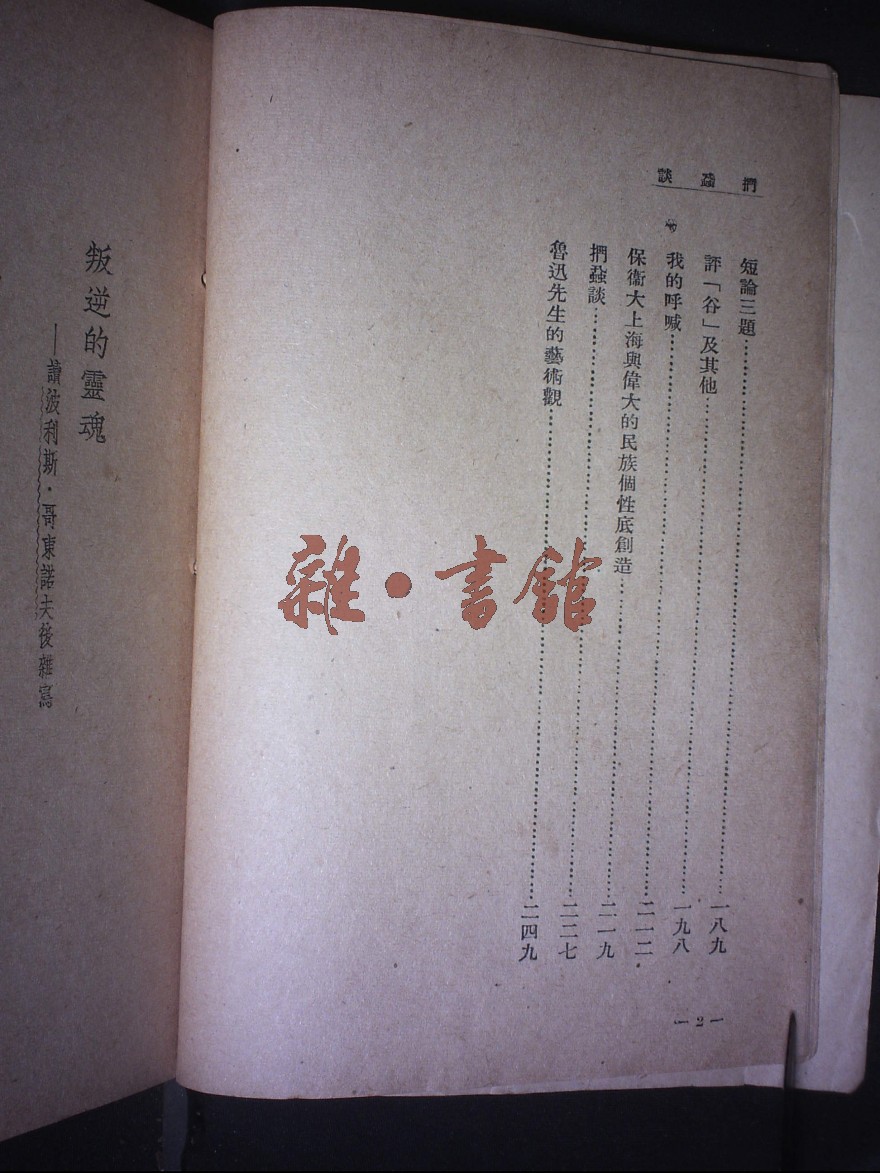 捫蝨談
短論三題……一八九
評「谷」及其他……一九八
我的呼喊……二一二
保衞大上海與偉大的民族個性底創造……二一九
捫蝨談……二二七
魯迅先生的藝術觀……二四九
— 2 —
叛逆的靈魂
——讀波利斯・哥東諾夫後雜寫
雜・書館